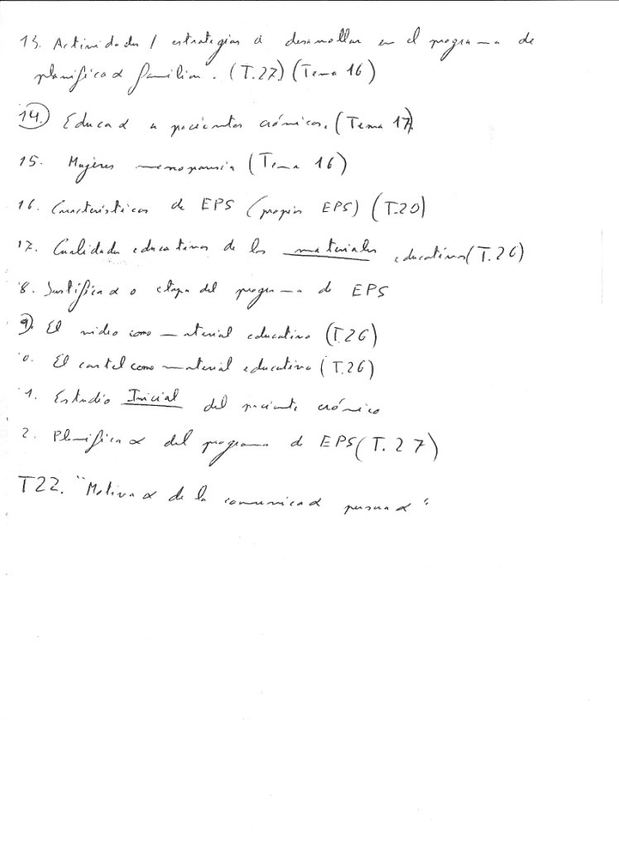 13. Actividades / estrategias a desarrollar en el programa de
planificaα familiar. (T.27) (Tema 16)
14. Educaα a pacientes crónicos. (Tema 17)
15. Mujeres menopausia (Tema 16)
16. Características de EPS (propias EPS) (T.20)
17. Cualidades educativas de los materiales educativos (T.26)
8. Justificaα o etapa del programa de EPS
9. El video como material educativo (T.26)
0. El cartel como material educativo (T.26)
1. Estudio Inicial del paciente crónico
2. Planificaα del programa de EPS (T.27)
T22. "Motivaα de la comunicaα persuaα"